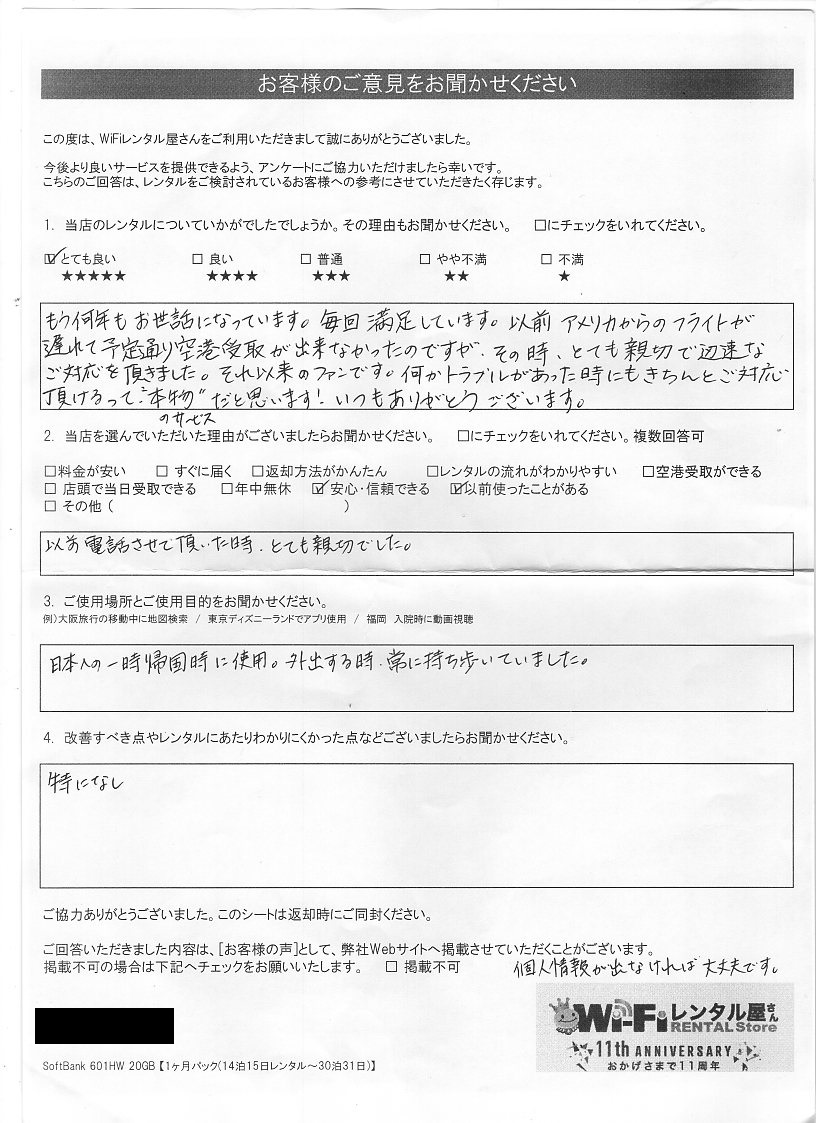 お客様のご意見をお聞かせください
この度は、WiFiレンタル屋さんをご利用いただきまして誠にありがとうございました。
今後より良いサービスを提供できるよう、アンケートにご協力いただけましたら幸いです。
こちらのご回答は、レンタルをご検討されているお客様への参考にさせていただきたく存じます。
1. 当店のレンタルについていかがでしたでしょうか。その理由もお聞かせください。 □にチェックをいれてください。
☑とても良い □ 良い □ 普通 □ やや不満 □ 不満
★★★★★ ★★★★ ★★★ ★★ ★
もう何年もお世話になっています。毎回満足しています。以前アメリカからのフライトが
遅れて予定通り空港受取が出来なかったのですが、その時、とても親切で迅速な
ご対応を頂きました。それ以来のファンです。何かトラブルがあった時にもきちんとご対応
頂けるって“本物”だと思います！いつもありがとうございます。
のサービス
2. 当店を選んでいただいた理由がございましたらお聞かせください。 □にチェックをいれてください。複数回答可
□料金が安い □ すぐに届く □返却方法がかんたん □レンタルの流れがわかりやすい □空港受取ができる
□ 店頭で当日受取できる □年中無休 ☑ 安心・信頼できる ☑以前使ったことがある
□ その他（ ）
以前電話させて頂いた時、とても親切でした。
3. ご使用場所とご使用目的をお聞かせください。
例）大阪旅行の移動中に地図検索 / 東京ディズニーランドでアプリ使用 / 福岡 入院時に動画視聴
日本への一時帰国時に使用。外出する時、常に持ち歩いていました。
4. 改善すべき点やレンタルにあたりわかりにくかった点などございましたらお聞かせください。
特になし
ご協力ありがとうございました。このシートは返却時にご同封ください。
ご回答いただきました内容は、[お客様の声]として、弊社Webサイトへ掲載させていただくことがございます。
掲載不可の場合は下記へチェックをお願いいたします。 □ 掲載不可 個人情報が出なければ大丈夫です。
Wi-Fiレンタル屋さん
RENTAL Store
11th ANNIVERSARY
おかげさまで11周年
SoftBank 601HW 20GB【1ヶ月パック(14泊15日レンタル～30泊31日)】